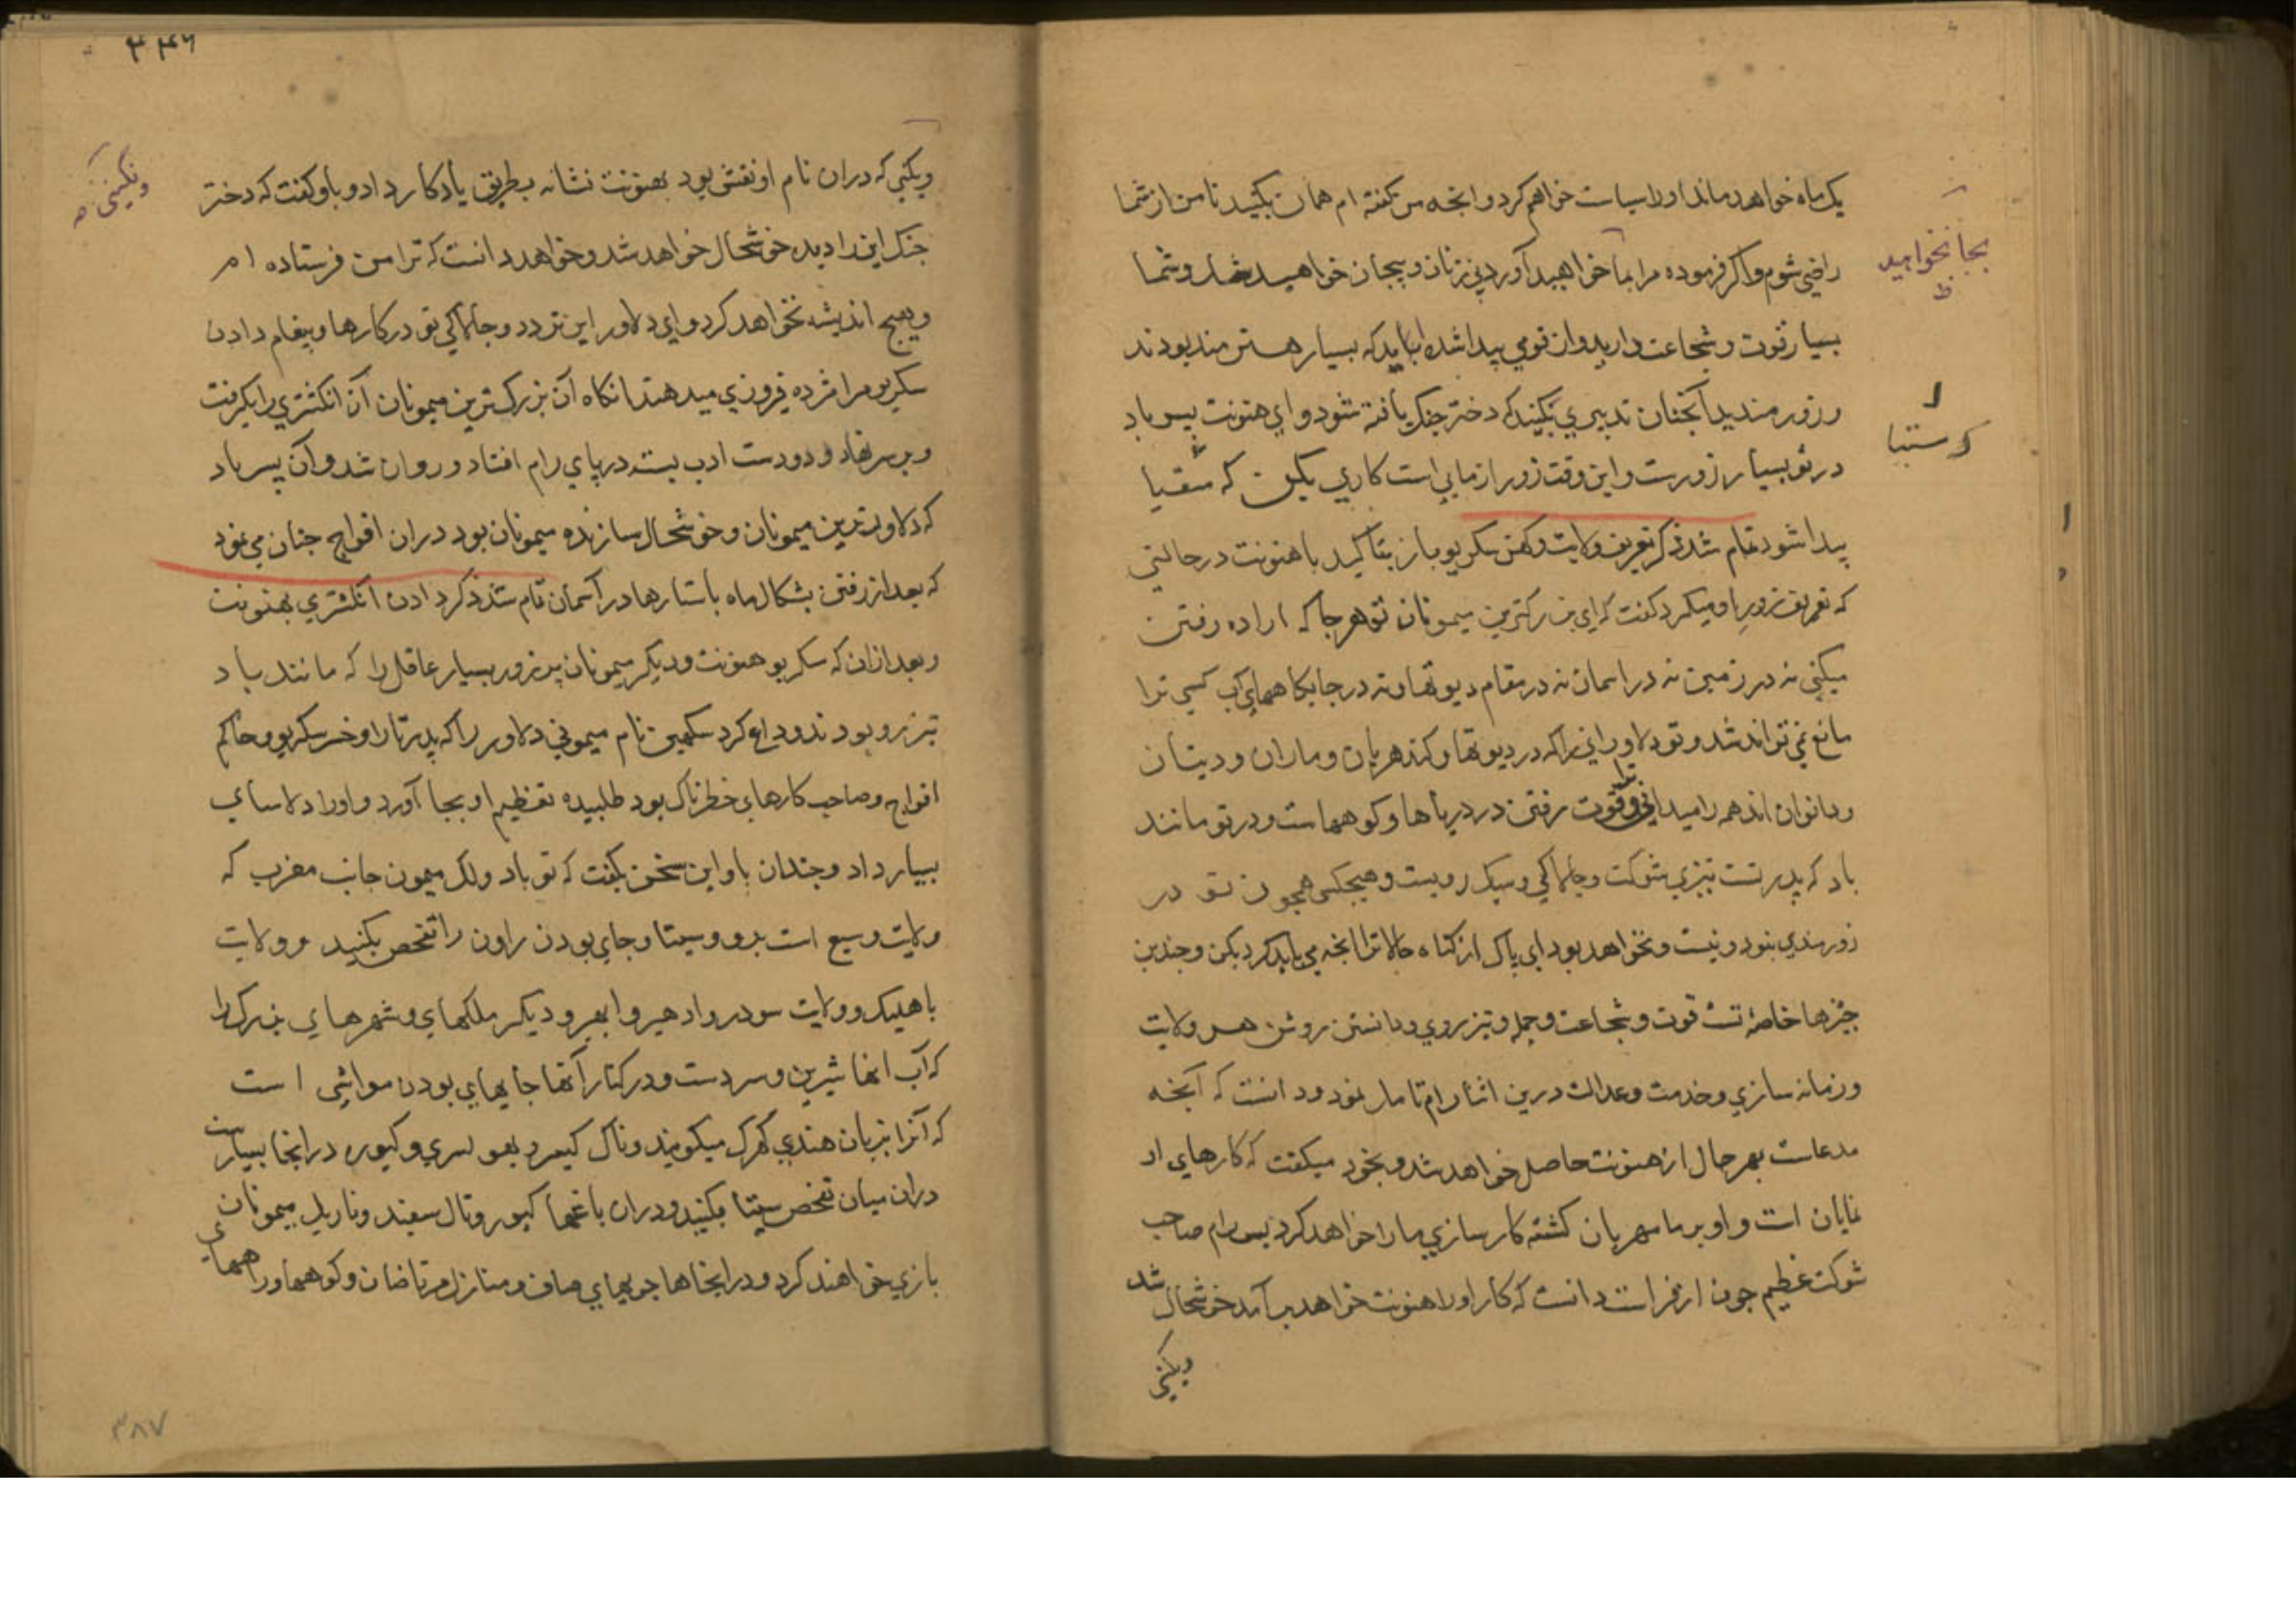 یک ماه خواهد ماند او را سیاست خواهم کرد و انچه من گفته ام همان بکنید تا من از شما
راضی شوم و اگر فرموده مرا بجا نخواهید آورد بی زنان و بیجان خواهید شد و شما
بجا نخواهید
ظ
بسیار قوت و شجاعت دارید و از قومی پیدا شده اید که بسیار هنرمند بودند
و زورمندید آنچنان تدبیری بکنید که دختر جنک یافته شود و ای هنونت پسر باد
که ستیا
در تو بسیار زورست و این وقت زور ازمایی است کاری بکن که ستیا
پیدا شود تمام شد ذکر تعریف ولایت دکهن سکریو باز بتاکید با هنونت در حالتی
که تعریف زور او میکرد گفت که ای بزرگترین میمونان تو هر جا که اراده رفتن
میکنی نه در زمین نه در اسمان نه در مقام دیوتها و نه در جایگاههای آب کسی ترا
مانع نمی تواند شد و تو دلاورانی را که در دیوتها و گندهربان و ماران و دیتان
و دانوان اند همه را میدانی و ترا قوت رفتن در دریاها و کوههاست و در تو مانند
باد که پدر تست تیزی شوکت و چالاکی و سبک رویست و هیچکس همچون تو در
زورمندی نبود و نیست و نخواهد بود ای پاک از گناه حالا ترا انچه می باید کرد بکن و چندین
چیزها خاصهٔ تست قوت و شجاعت و حمله و تیزروی و دانستن روش هر ولایت
و زمانه سازی و خدمت و عدالت درین اثنا رام تامل نمود و دانست که آنچه
مدعاست بهر حال از هنونت حاصل خواهد شد و بخود میگفت که کارهای او
نمایان است و او بر ما مهربان گشته کارسازی ما را خواهد کرد پس رام صاحب
شوکت عظیم چون از فراست دانست که کار او را هنونت خواهد برآمد خوشحال شد
ونگینی
۳۴۶
ونگینی که دران نام او نقش بود بهنونت نشانه بطریق یادکار داد و باو گفت که دختر
ونگینی صه
جنک این را دیده خوشحال خواهد شد و خواهد دانست که ترا من فرستاده ام
و هیچ اندیشه نخواهد کرد و ای دلاور این تردد و چالاکی تو در کارها و پیغام دادن
سکریو مرا مژده فیروزی میدهند انگاه آن بزرگ ترین میمونان آن انکشتری را بگرفت
و بر سر نهاد و دو دست ادب بسته در پای رام افتاد و روان شد و آن پسر باد
که دلاورترین میمونان و خوشحال سازنده میمونان بود دران افواج چنان می نمود
که بعد از رفتن بشکال ماه با ستارها در آسمان تمام شد ذکر دادن انکشتری بهنونت
و بعد ازان که سکریو هنونت و دیگر میمونان پرزور بسیار عاقل را که مانند باد
تیزرو بودند وداع کرد سکهین نام میمونی دلاور را که پدر تارا و خسر سکریو و حاکم
افواج و صاحب کارهای خطرناک بود طلبیده تعظیم او بجا آورد و او را دلاسای
بسیار داد و چندان باو این سخن بگفت که تو باد و لک میمون جانب مغرب که
ولایت وسیع است برو و سیتا و جای بودن راون را تفحص بکنید و ولایت
باهلیک و ولایت سودر و ادهیر و ابهیر و دیگر ملکهای و شهرهای بزرک را
که آب انها شیرین و سردست و در کنار آنها جایهای بودن مواشی است
که آنرا بزبان هندی کهرک میکویند و ناک کیسر و بهولسری و کیوره در انجا بسیارست
دران میان تفحص سیتا بکنید و دران باغها کیوره و تال سفید و ناریل میمونان
بازی خواهند کرد و در انجاها جویهای صاف و منازل مرتاضان و کوهها و راههای
۳۸۷